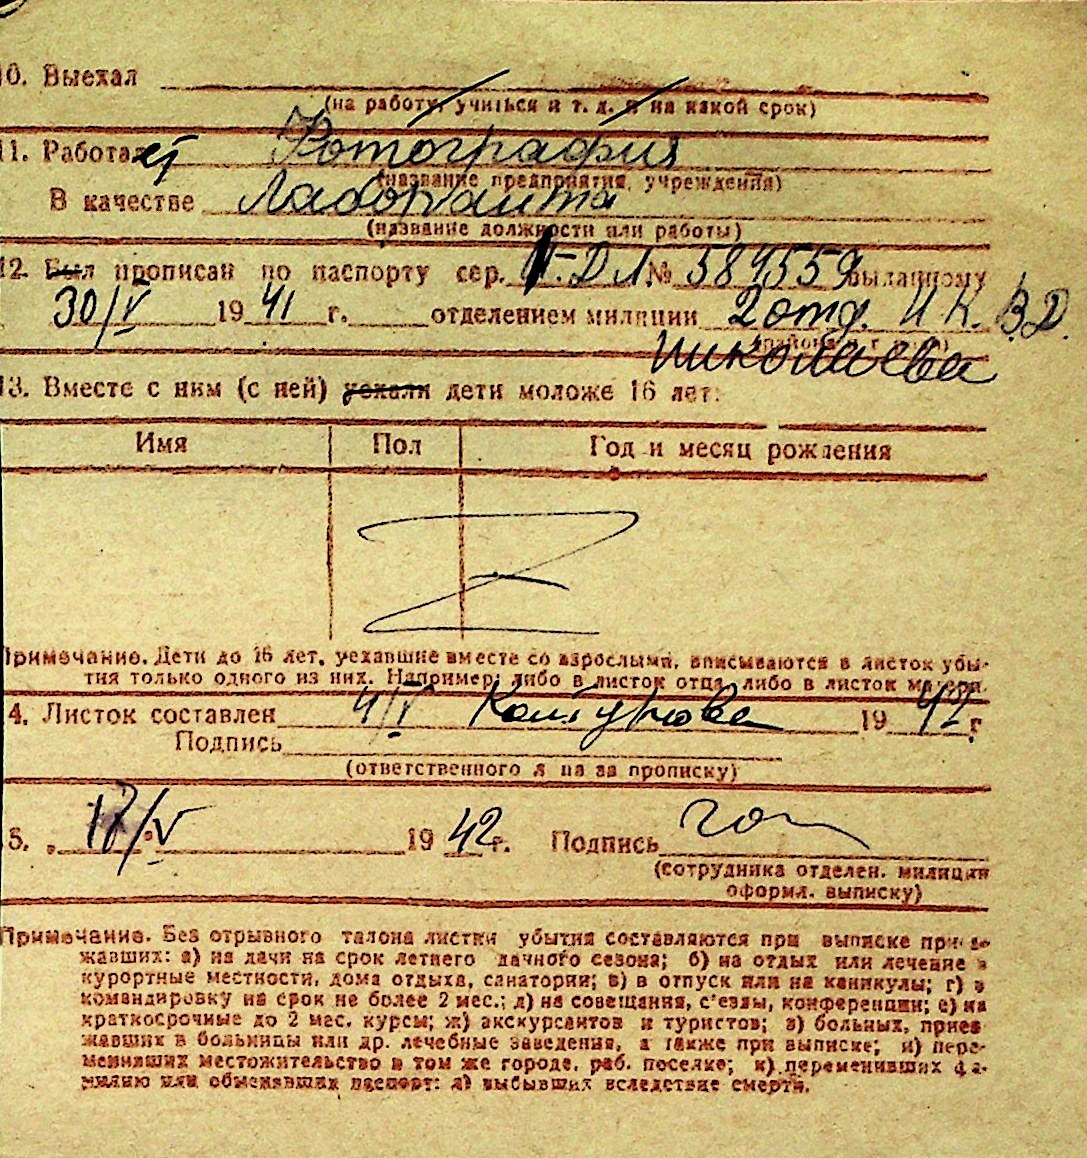 10. Выехал
(на работу, учиться и т. д. и на какой срок)
11. Работает Фотография
(название предприятия, учреждения)
В качестве Лаборанта
(название должности или работы)
12. Был прописан по паспорту сер. ДЛ № 584559 выданному
30/V 1941 г. отделением милиции 2 отд. Н К. В. Д.
Николаева
13. Вместе с ним (с ней) уехали дети моложе 16 лет:
Имя Пол Год и месяц рождения
Z
Примечание. Дети до 16 лет, уехавшие вместе со взрослыми, вписываются в листок убы-
тия только одного из них. Например: либо в листок отца, либо в листок матери.
4. Листок составлен 4/V 1942 г
Подпись
(ответственного л ца за прописку)
5. 17/V 1942 г. Подпись
(сотрудника отделен. милиции
оформл. выписку)
Примечание. Без отрывного талона листки убытия составляются при выписке приез-
жавших: а) на дачи на срок летнего дачного сезона; б) на отдых или лечение в
курортные местности, дома отдыха, санатории; в) в отпуск или на каникулы; г) в
командировку на срок не более 2 мес.; д) на совещания, с'езды, конференции; е) на
краткосрочные до 2 мес. курсы; ж) экскурсантов и туристов; з) больных, приез
жавших в больницы или др. лечебные заведения, а также при выписке; и) пере-
менивших местожительство в том же городе, раб. поселке; к) переменивших фа-
милию или обменявших паспорт; л) выбывших вследствие смерти.